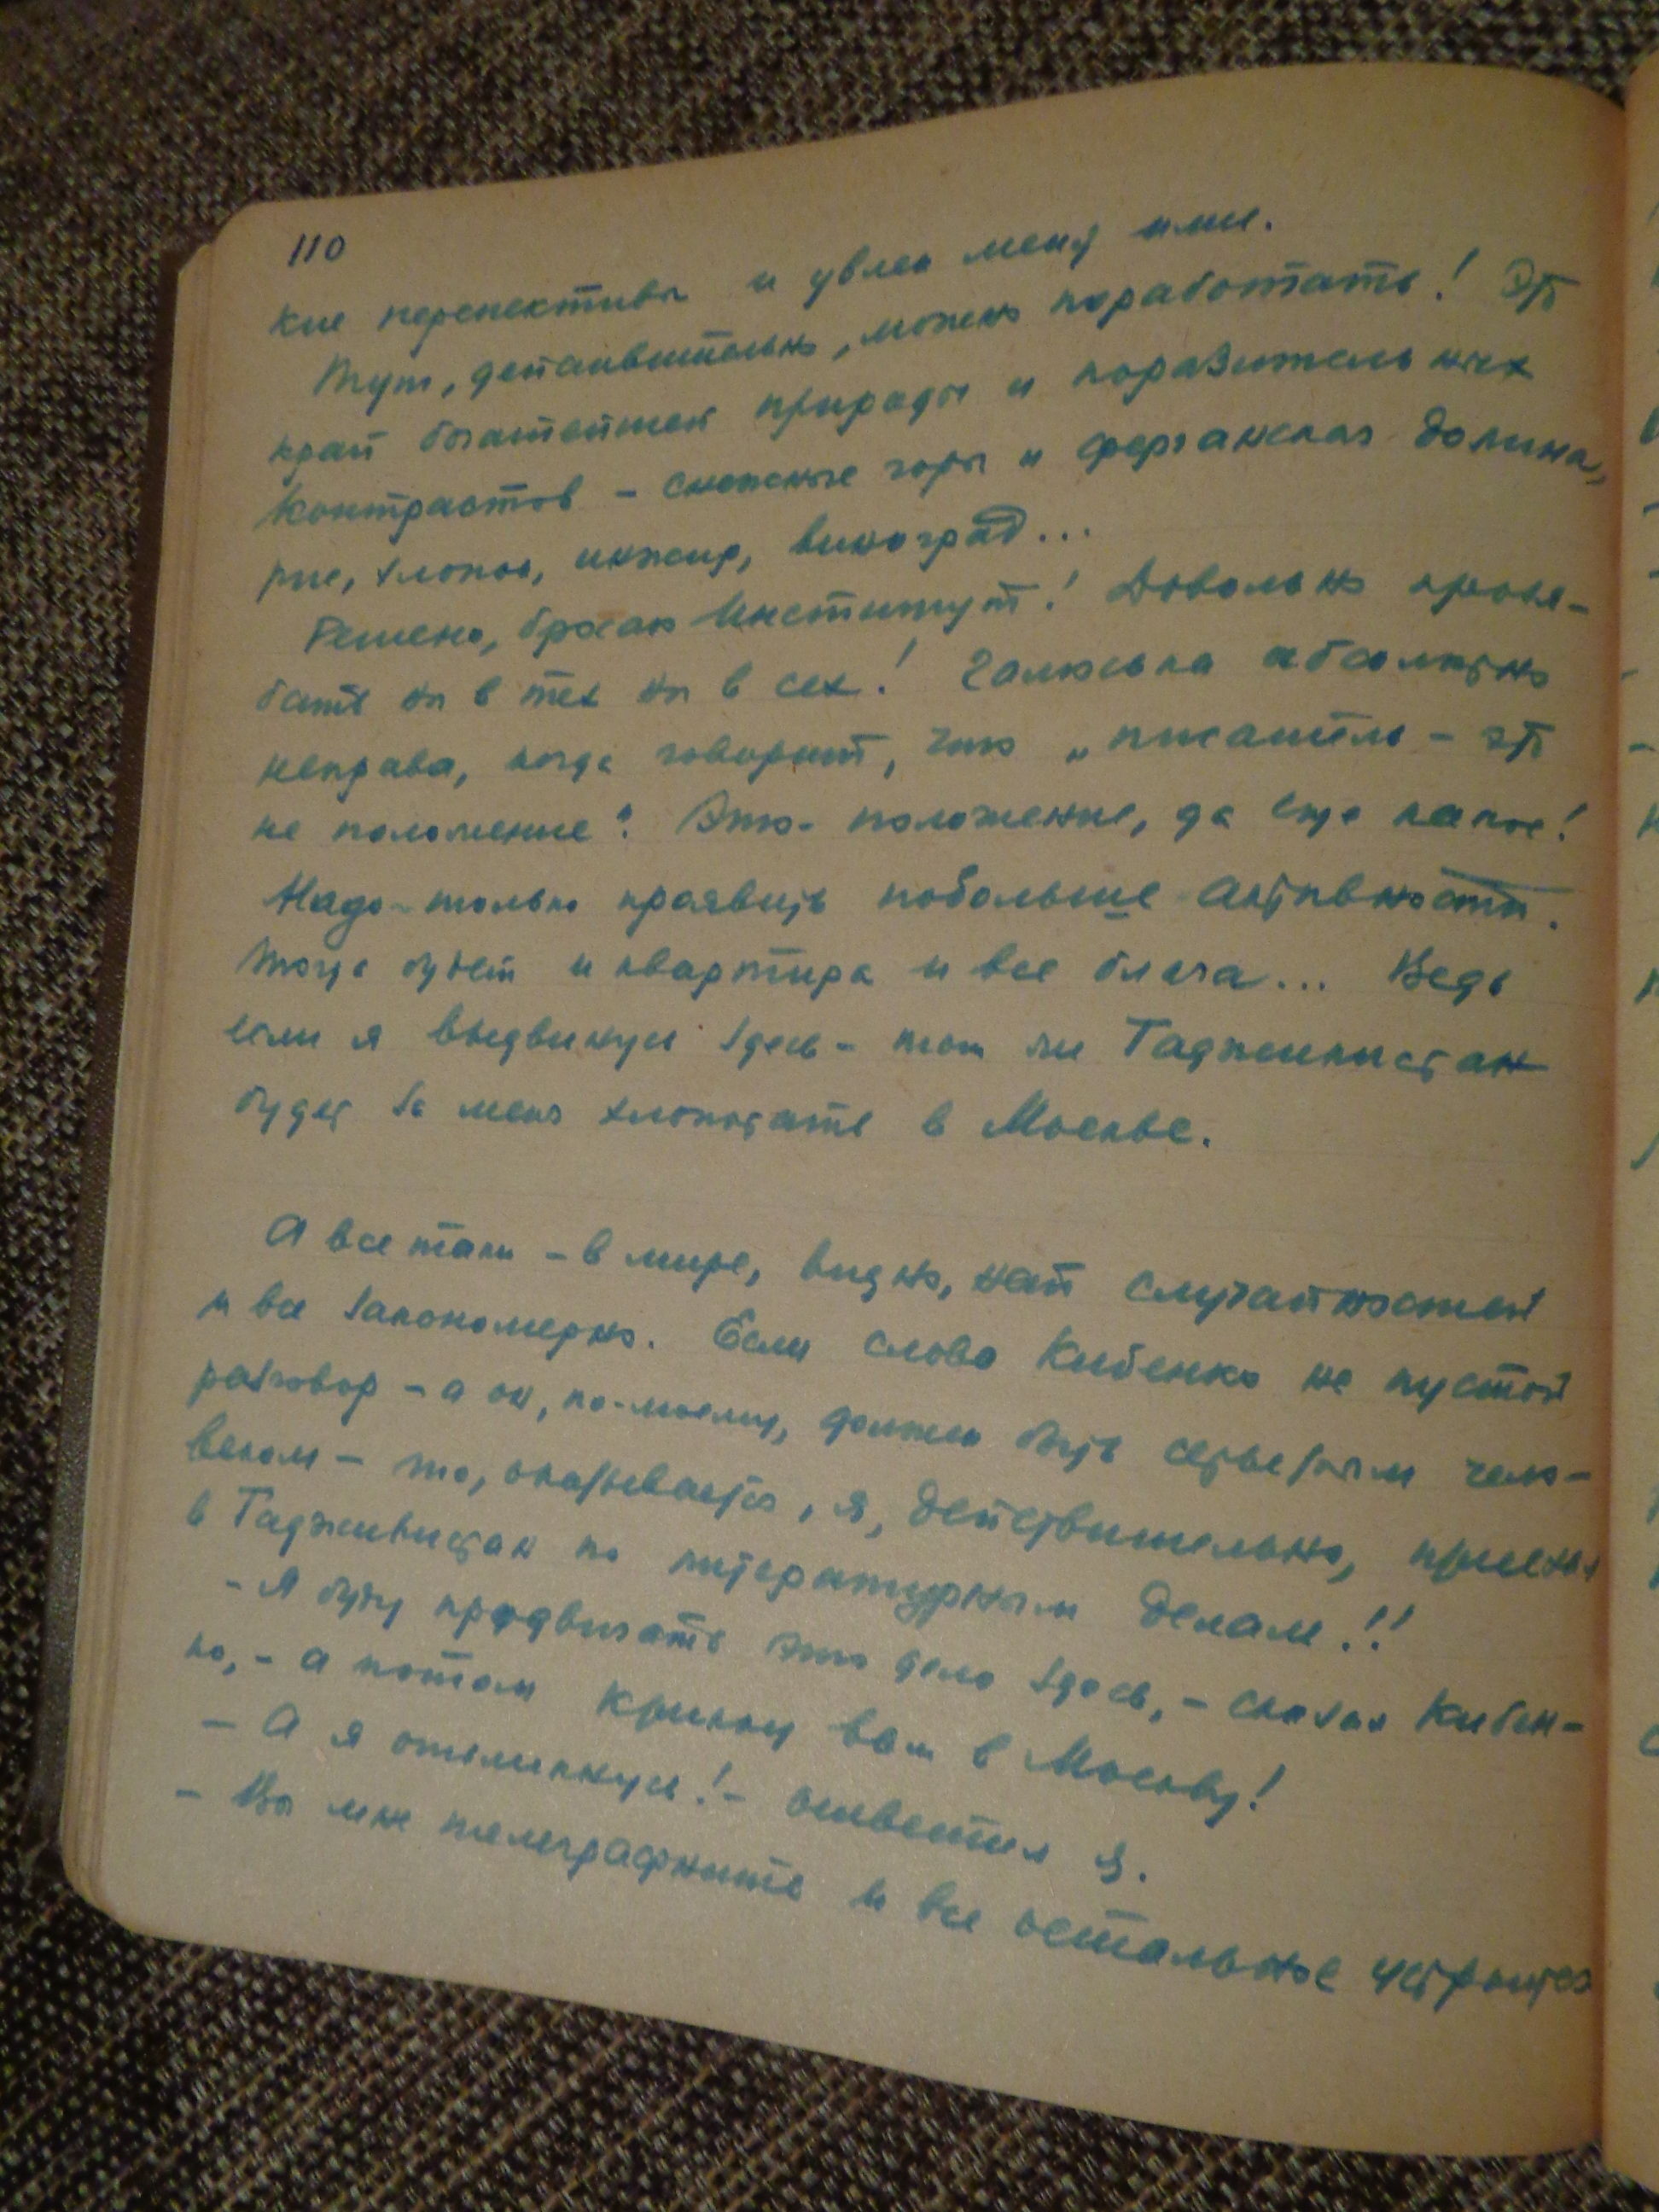 110
кие перспективы и увлек меня ими.
Тут, действительно, можно поработать! Это
край богатейшей природы и поразительных
контрастов – снежные горы и ферганская долина,
рис, хлопок, инжир, виноград...
Решено, бросаю Институт! Довольно
ни в тех ни в сех! Галюська абсолютно
неправа, когда говорит, что „писатель – это
не положение". Это – положение, да еще какое!
Надо – только проявить побольше активности.
Тогда будет и квартира и все блага... Ведь
если я выдвинусь здесь – тот же Таджикистан
будет за меня хлопотать в Москве.
А все таки – в мире, видно, нет случайностей
и все закономерно. Если слова Кибенко не пустой
разговор – а он, по-моему, должен быть серьезным чело-
веком – то, оказывается, я, действительно, приехал
в Таджикистан по литературным делам!!
– Я буду продвигать это дело здесь, – сказал Кибен-
ко, – а потом крикну вам в Москву!
– А я откликнусь! – ответил я.
– Вы мне телеграфните и все остальное устроится